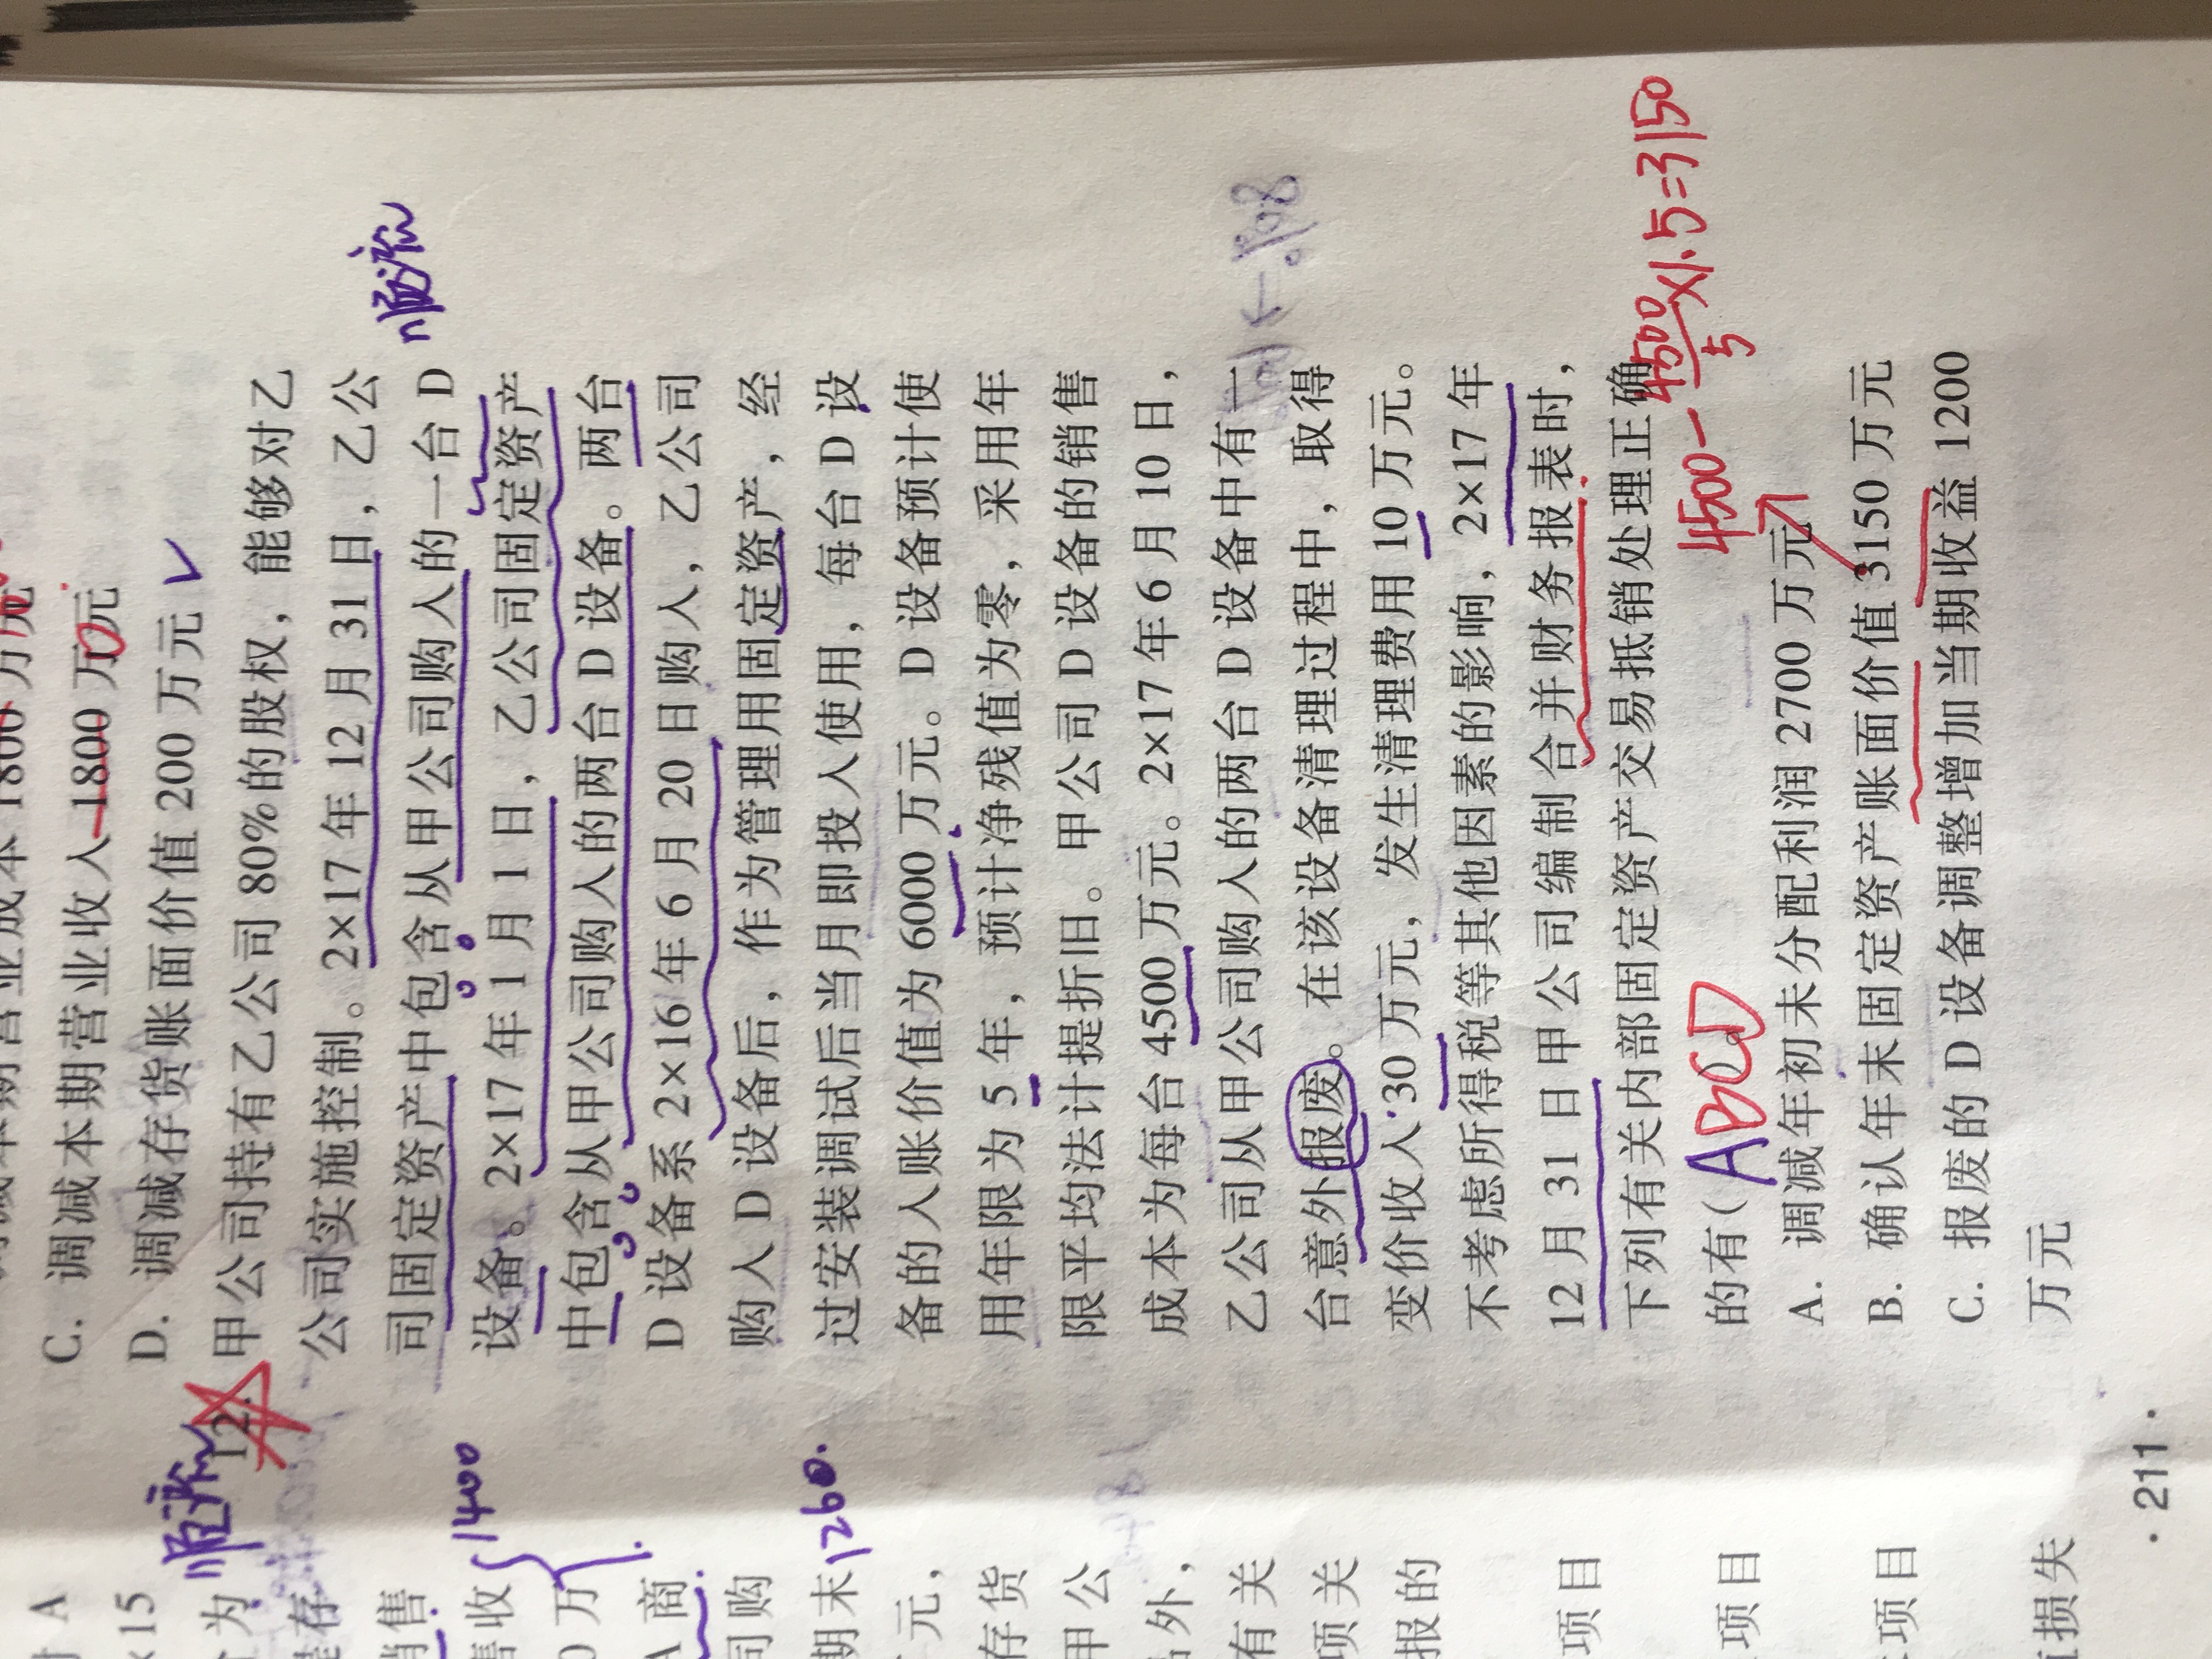 C. 调减本期营业收入 1800 万元
D. 调减存货账面价值 200 万元
顺流
12. 甲公司持有乙公司 80%的股权，能够对乙
公司实施控制。2×17 年 12 月 31 日，乙公
司固定资产中包含从甲公司购入的一台 D
顺流
设备。2×17 年 1 月 1 日，乙公司固定资产
中包含从甲公司购入的两台 D 设备。两台
D 设备系 2×16 年 6 月 20 日购入，乙公司
购入 D 设备后，作为管理用固定资产，经
过安装调试后当月即投入使用，每台 D 设
备的入账价值为 6000 万元。D 设备预计使
用年限为 5 年，预计净残值为零，采用年
限平均法计提折旧。甲公司 D 设备的销售
成本为每台 4500 万元。2×17 年 6 月 10 日，
乙公司从甲公司购入的两台 D 设备中有一
台意外报废。在该设备清理过程中，取得
变价收入 30 万元，发生清理费用 10 万元。
不考虑所得税等其他因素的影响，2×17 年
12 月 31 日甲公司编制合并财务报表时，
下列有关内部固定资产交易抵销处理正确
的有（ ABCD
4500－4500/5×1.5＝3150
A. 调减年初未分配利润 2700 万元
B. 确认年末固定资产账面价值 3150 万元
C. 报废的 D 设备调整增加当期收益 1200
万元
A
×15
为
是存
销售
售收
1400
0 万
A 商
司购
期末
1260.
元，
存货
甲公
另外，
有关
项关
报的
项目
项目
项目
损失
· 211 ·